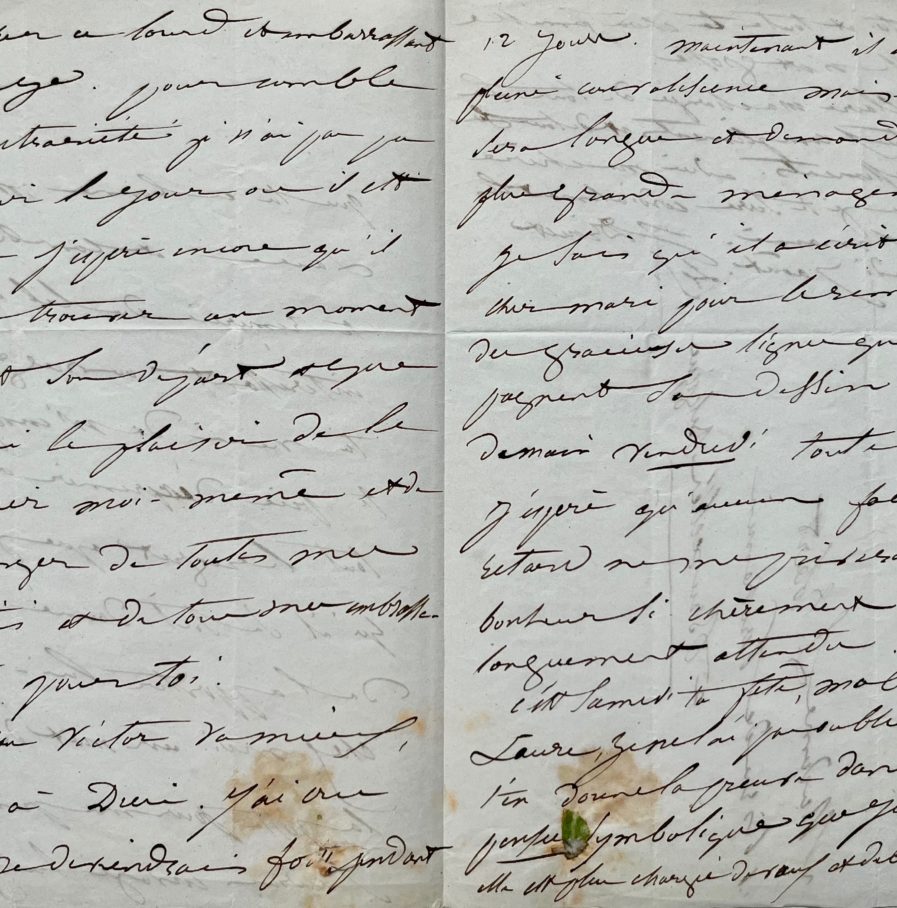 ce lourd et embarrassant
pour comble
je n'ai pas pu
le jour où il est
j'espère encore qu'il
trouver au moment
son départ et que
le plaisir de le
moi-même et de
de toutes mes
et de tous mes embrasse-
pour toi.
Victor va mieux,
à Dieu. j'ai cru
deviendrais folle pendant
12 jours. maintenant il
convalescence mais
sera longue et demand
plus grands ménagem
je sais qu'il a écrit
cher mari pour le rem
des gracieuses lignes qu
pagnent son dessin
demain vendredi toute
j'espère qu'aucun
retard ne me privera
bonheur si chèrement
longuement attendu
c'est Samedi ta fête, ma
Laure, je ne l'ai pas oublié
t'en donne la preuve dans
pensée symbolique que je
elle est plus chargée de vœux et de